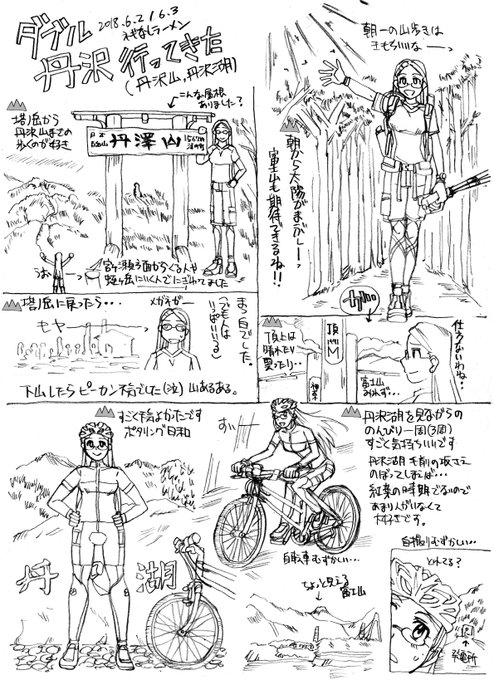 ダブル
丹沢 行ってきた
2018.6.2/6.3
(丹沢山,丹沢湖)
朝一の山歩きは
きもちいいなーっ
朝から太陽がまぶしーっ
富士山も期待できるね!!
こんな屋根
ありました?
塔ノ岳から
丹沢山までの
歩くのが好き
日本
百名山
丹澤山
うおーっ
宮ヶ瀬方面からくる人や
蛭ヶ岳にいく人でにぎわってました
塔ノ岳に戻ったら・・・
モヤー
メガネがー
まっ白でした。
下山したらピーカン天気でした(泣) 山あるある。
頂上は
晴れたり
曇ったり・・
頂
富士山
みれず・・・
仕方ないわね・・
すごく天気よかったです
ポタリング日和
丹
湖
すぃー
自転車むずかしい・・・
丹沢湖を見ながらの
のんびり一周(3周)
すごく気持ちいいです
丹沢湖手前の坂さえ
のぼってしまえば・・・
紅葉の時期でないので
あまり人がいなくて
大好きです。
ちょっと見える
富士山
自撮りむずかしい・・
とれてる?
発電所